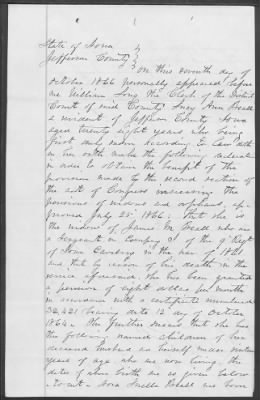 State of Iowa
Jefferson County
On this seventh day of
October 1866 personally appeared before
me William Long the Clerk of the District
Court of said County Lucy Ann
a resident of Jefferson County Iowa
aged twenty eight years who being
first duly sworn according to law doth
on her oath make the following declaration
in order to obtain the benefit of the
provision made to the second section of
the act of Congress increasing the
pensions of widows and orphans, ap-
proved July 25 1866: That she is
the widow of James M. who was
a Sergeant in Company of the 9" Regt
of Iowa Cavalry in the war of 1861
and that by reason of his death in the
service aforesaid she has been granted
a pension of eight dollars per month
in accordance with a certificate numbered
36,421 bearing date 12" day of October
1864. She further swears that she has
the following named children of her
deceased husband and herself under sixteen
years of age who are now living the
dates of whose birth are as given below
To wit - was born